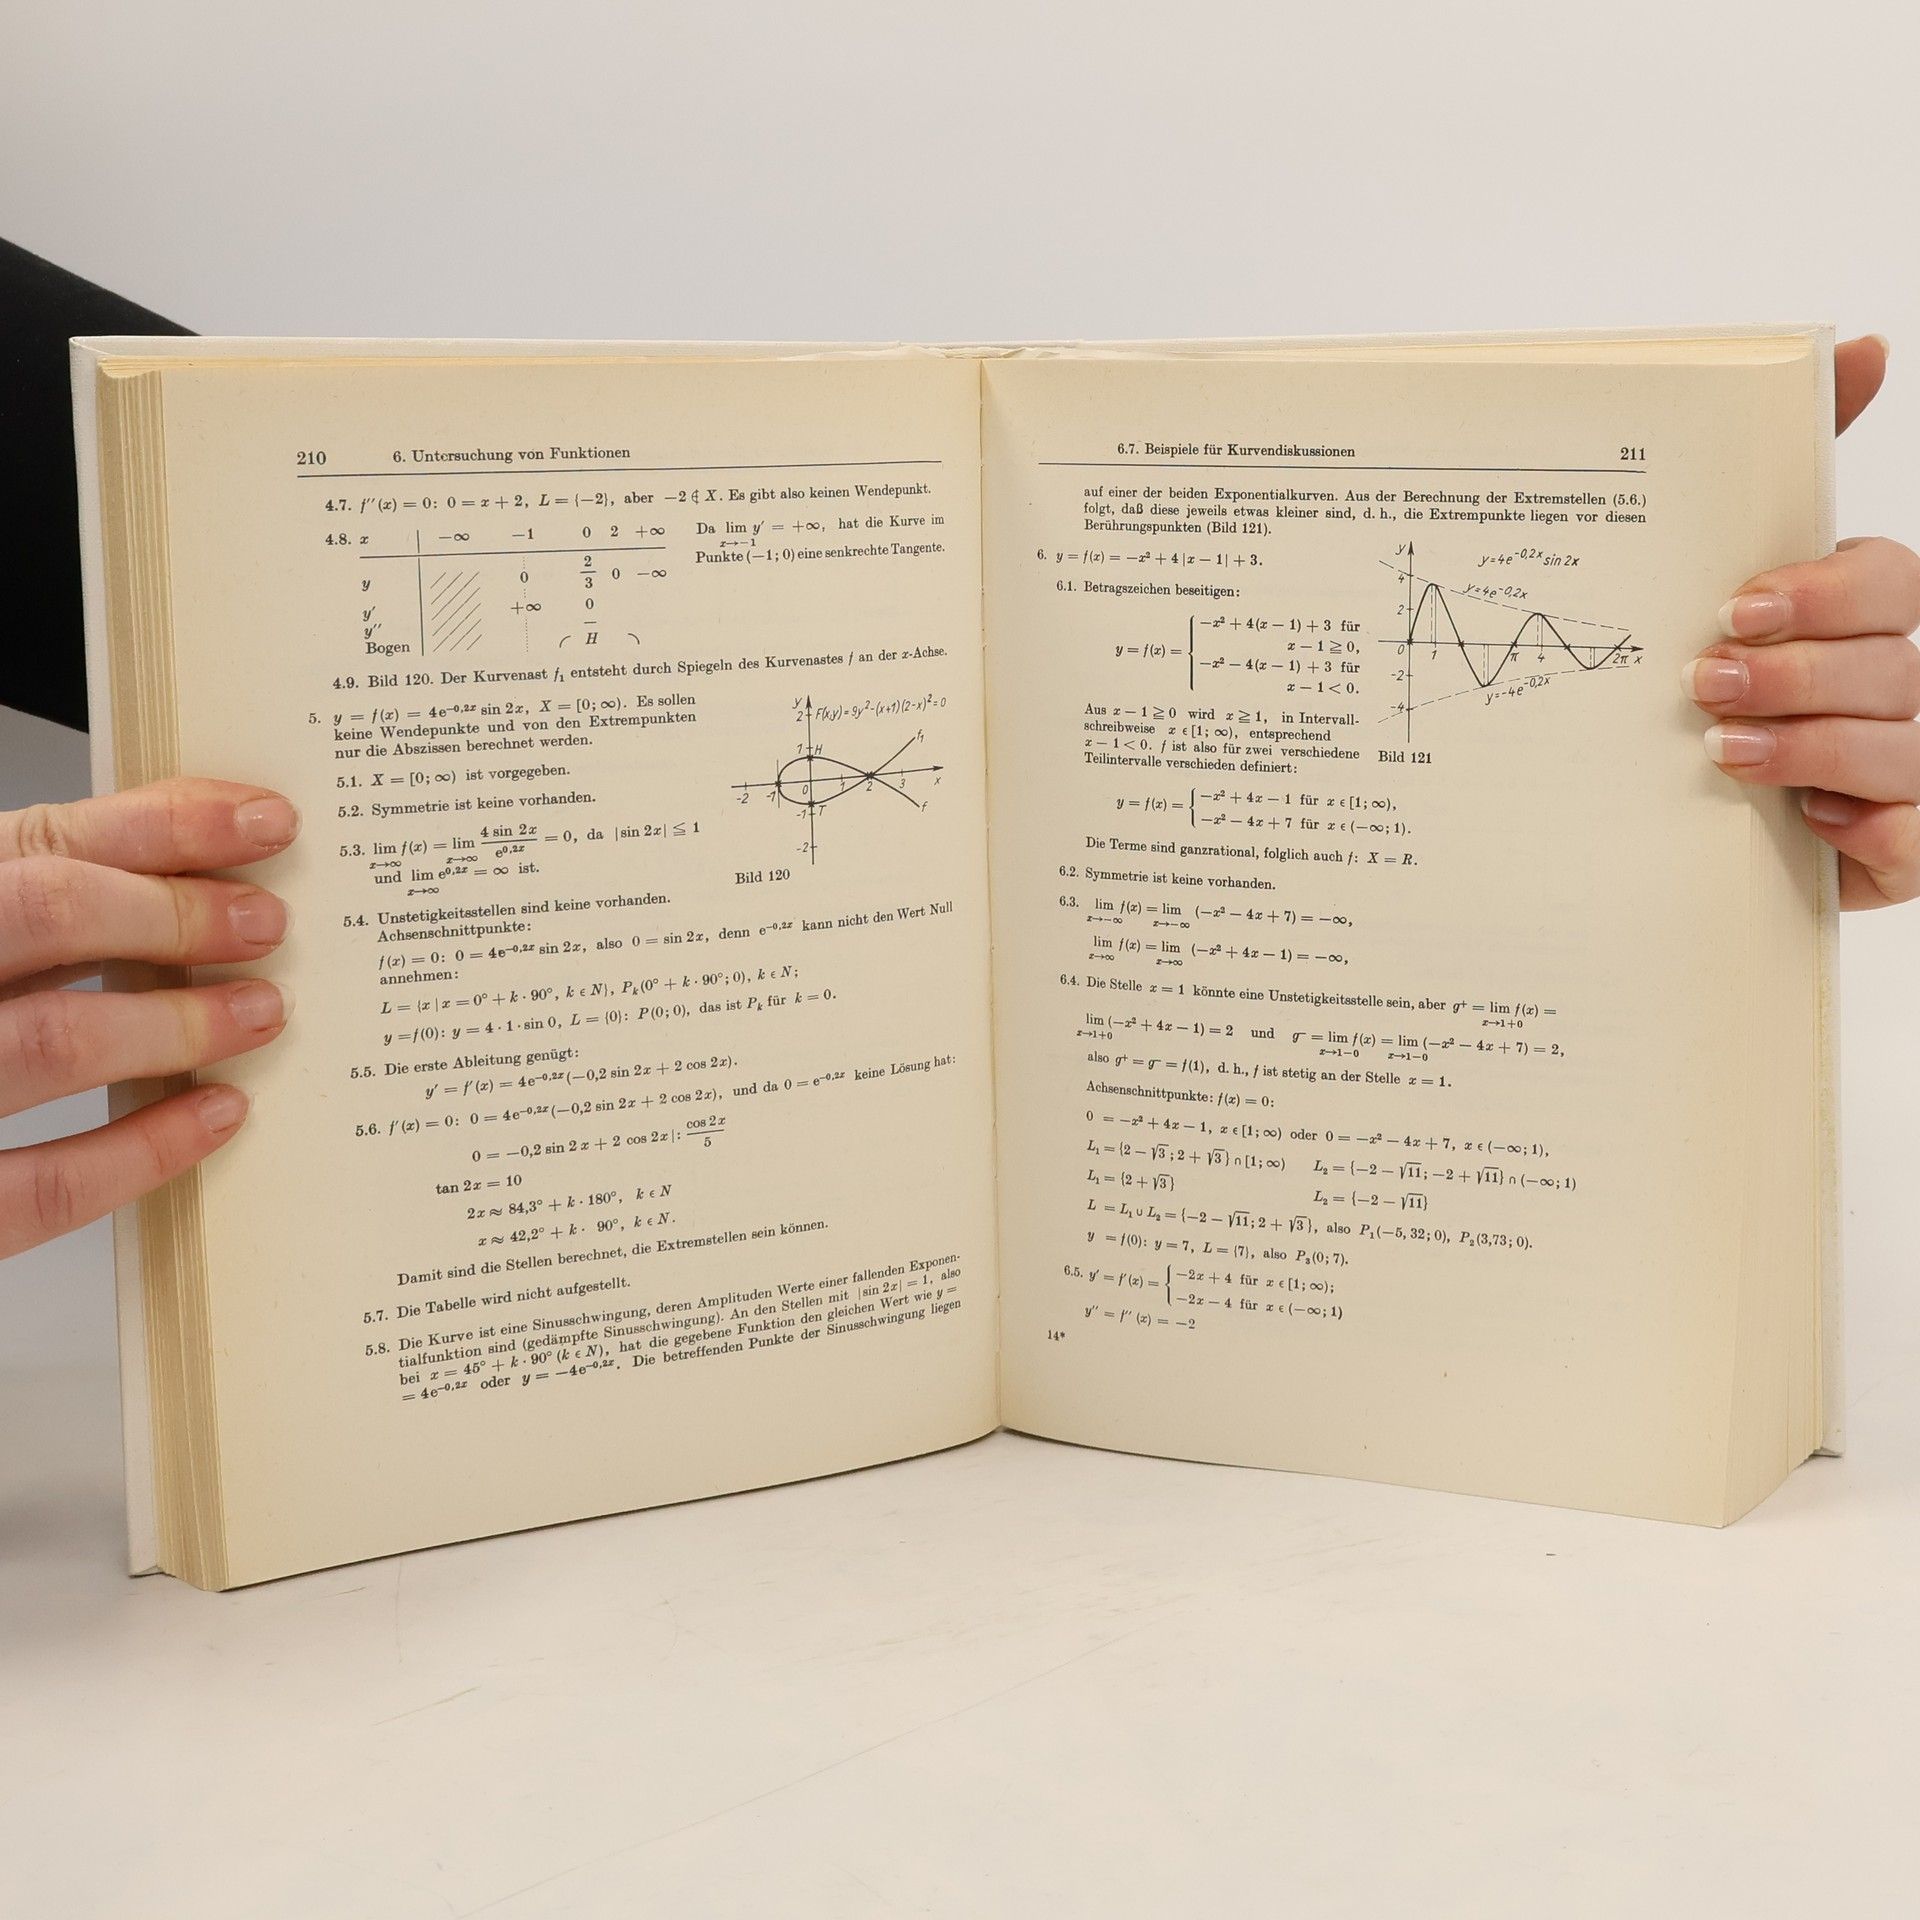 210 6. Untersuchung von Funktionen
4.7. f''(x) = 0: 0 = x + 2, L = {−2}, aber −2 ∉ X. Es gibt also keinen Wendepunkt.
4.8. x −∞ −1 0 2 +∞
y 0 2/3 0 −∞
y' +∞ 0
y'' —
Bogen H
Da lim y' = +∞, hat die Kurve im
x→−1
Punkte (−1; 0) eine senkrechte Tangente.
4.9. Bild 120. Der Kurvenast f₁ entsteht durch Spiegeln des Kurvenastes f an der x-Achse.
5. y = f(x) = 4e^−0,2x sin 2x, X = [0; ∞). Es sollen
keine Wendepunkte und von den Extrempunkten
nur die Abszissen berechnet werden.
5.1. X = [0; ∞) ist vorgegeben.
5.2. Symmetrie ist keine vorhanden.
5.3. lim f(x) = lim 4 sin 2x / e^0,2x = 0, da |sin 2x| ≦ 1
x→∞ x→∞
und lim e^0,2x = ∞ ist.
x→∞
y 2 F(x,y)=9y²−(x+1)(2−x)²=0
1 H f₁
−2 −1 0 1 2 3 x
−1 T f
−2
Bild 120
5.4. Unstetigkeitsstellen sind keine vorhanden.
Achsenschnittpunkte:
f(x) = 0: 0 = 4e^−0,2x sin 2x, also 0 = sin 2x, denn e^−0,2x kann nicht den Wert Null
annehmen:
L = {x | x = 0° + k · 90°, k ϵ N}, Pₖ(0° + k · 90°; 0), k ϵ N;
y = f(0): y = 4 · 1 · sin 0, L = {0}: P(0; 0), das ist Pₖ für k = 0.
5.5. Die erste Ableitung genügt:
y' = f'(x) = 4e^−0,2x (−0,2 sin 2x + 2 cos 2x).
5.6. f'(x) = 0: 0 = 4e^−0,2x (−0,2 sin 2x + 2 cos 2x), und da 0 = e^−0,2x keine Lösung hat:
0 = −0,2 sin 2x + 2 cos 2x |: cos 2x / 5
tan 2x = 10
2x ≈ 84,3° + k · 180°, k ϵ N
x ≈ 42,2° + k · 90°, k ϵ N.
Damit sind die Stellen berechnet, die Extremstellen sein können.
5.7. Die Tabelle wird nicht aufgestellt.
5.8. Die Kurve ist eine Sinusschwingung, deren Amplituden Werte einer fallenden Exponen-
tialfunktion sind (gedämpfte Sinusschwingung). An den Stellen mit |sin 2x| = 1, also
bei x = 45° + k · 90° (k ϵ N), hat die gegebene Funktion den gleichen Wert wie y =
= 4e^−0,2x oder y = −4e^−0,2x. Die betreffenden Punkte der Sinusschwingung liegen
6.7. Beispiele für Kurvendiskussionen 211
auf einer der beiden Exponentialkurven. Aus der Berechnung der Extremstellen (5.6.)
folgt, daß diese jeweils etwas kleiner sind, d. h., die Extrempunkte liegen vor diesen
Berührungspunkten (Bild 121).
6. y = f(x) = −x² + 4 |x − 1| + 3.
6.1. Betragszeichen beseitigen:
y = f(x) = { −x² + 4(x − 1) + 3 für
x − 1 ≧ 0,
−x² − 4(x − 1) + 3 für
x − 1 < 0.
Aus x − 1 ≧ 0 wird x ≧ 1, in Intervall-
schreibweise x ϵ [1; ∞), entsprechend
x − 1 < 0. f ist also für zwei verschiedene
Teilintervalle verschieden definiert:
y y=4e^−0,2x sin 2x
4 y=4e^−0,2x
2
0 1 π 4 2π x
−2 y=−4e^−0,2x
−4
Bild 121
y = f(x) = { −x² + 4x − 1 für x ϵ [1; ∞),
−x² − 4x + 7 für x ϵ (−∞; 1).
Die Terme sind ganzrational, folglich auch f: X = R.
6.2. Symmetrie ist keine vorhanden.
6.3. lim f(x) = lim (−x² − 4x + 7) = −∞,
x→−∞ x→−∞
lim f(x) = lim (−x² + 4x − 1) = −∞,
x→∞ x→∞
6.4. Die Stelle x = 1 könnte eine Unstetigkeitsstelle sein, aber g⁺ = lim f(x) =
x→1+0
lim (−x² + 4x − 1) = 2 und g⁻ = lim f(x) = lim (−x² − 4x + 7) = 2,
x→1+0 x→1−0 x→1−0
also g⁺ = g⁻ = f(1), d. h., f ist stetig an der Stelle x = 1.
Achsenschnittpunkte: f(x) = 0:
0 = −x² + 4x − 1, x ϵ [1; ∞) oder 0 = −x² − 4x + 7, x ϵ (−∞; 1),
L₁ = {2 − √3; 2 + √3} ∩ [1; ∞) L₂ = {−2 − √11; −2 + √11} ∩ (−∞; 1)
L₁ = {2 + √3} L₂ = {−2 − √11}
L = L₁ ∪ L₂ = {−2 − √11; 2 + √3}, also P₁(−5, 32; 0), P₂(3,73; 0).
y = f(0): y = 7, L = {7}, also P₃(0; 7).
6.5. y' = f'(x) = { −2x + 4 für x ϵ [1; ∞);
−2x − 4 für x ϵ (−∞; 1)
y'' = f''(x) = −2
14*